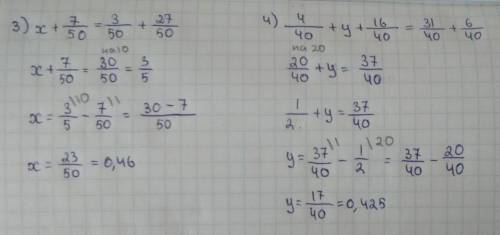 3) x + 7/50 = 3/50 + 27/50
x + 7/50 = 30/50 на 10 = 3/5
x = 3/5 |10 - 7/50 |1 = 30 - 7/50
x = 23/50 = 0,46
4) 4/40 + y + 16/40 = 31/40 + 6/40
на 20
20/40 + y = 37/40
1/2 + y = 37/40
y = 37/40 |1 - 1/2 |20 = 37/40 - 20/40
y = 17/40 = 0,425